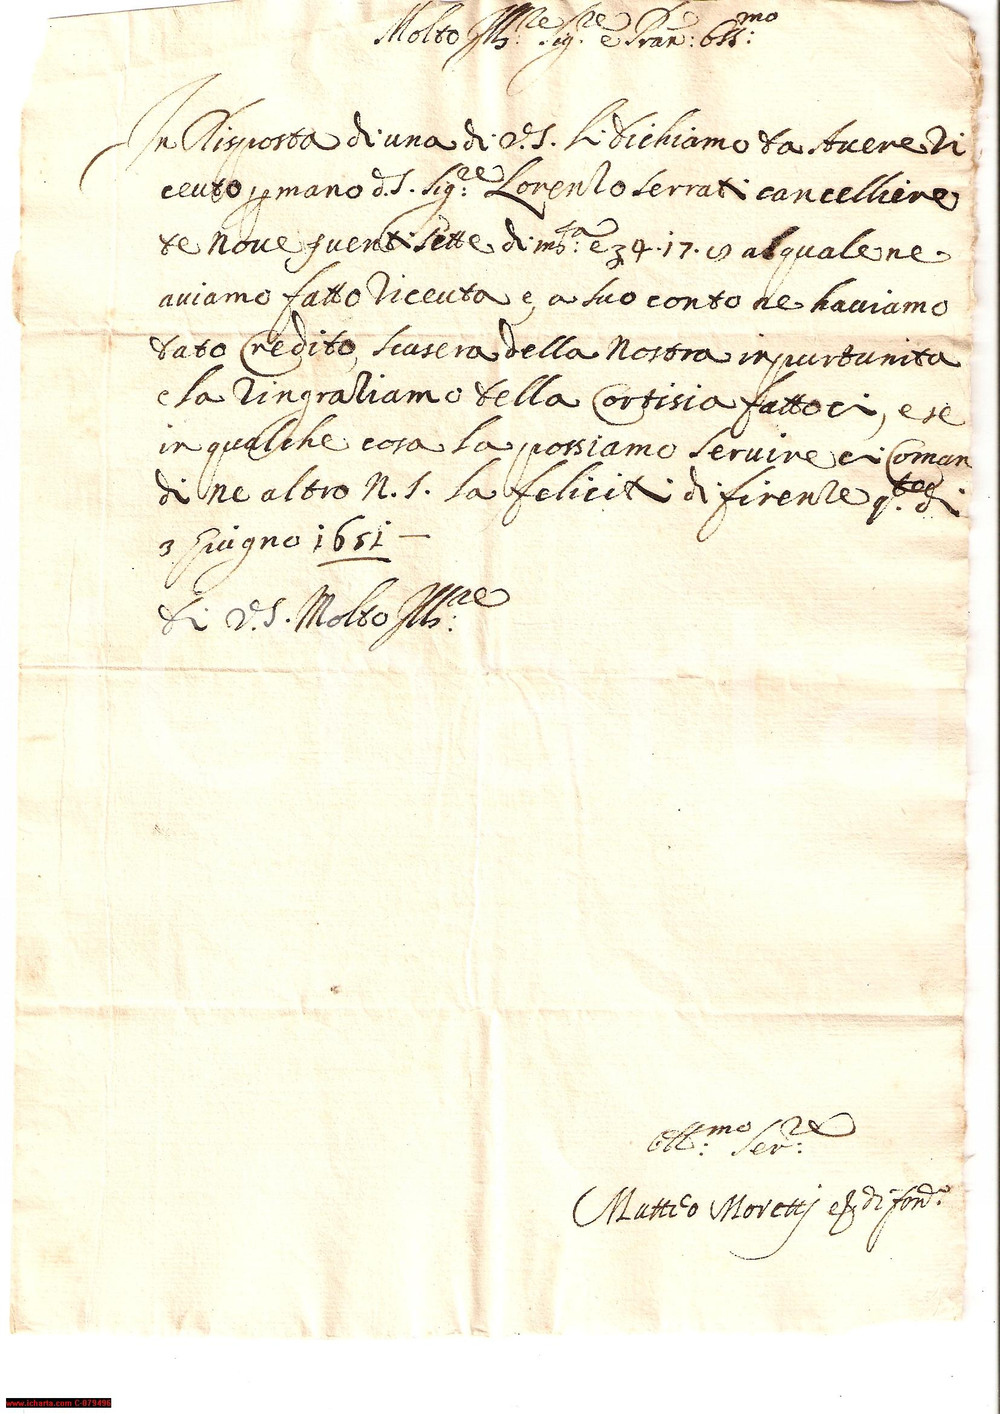 Molto Ill:re Sig:re e Pran: Oss:mo
In Risposta di una di V.S. li dichiamo da Avere ri
ceuto p mano d.S. Sig:re Lorenzo Serrati cancelliere
te Nove e venti Sette di m:ta e 4.17. al quale ne
aviamo fatto riceuta e, a suo conto ne haviamo
dato Credito, scusera della Nostra inportunita
e la ringratiamo della Cortisia fattoci, e se
in qualche cosa la possiamo servire ci Coman
di ne altro N.S. la feliciti di firenze q:to di
3 Giugno 1651 —
di V.S. Molto Ill:re
Obl:mo Ser:re
Matteo Moretti e di fond:o
www.icharta.com C-079496